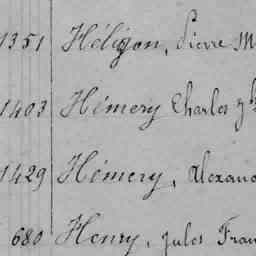 1351 Héligon, Pierre M
1403 Hémery Charles
1429 Hémery, Alexand
680 Henry, Jules Fran